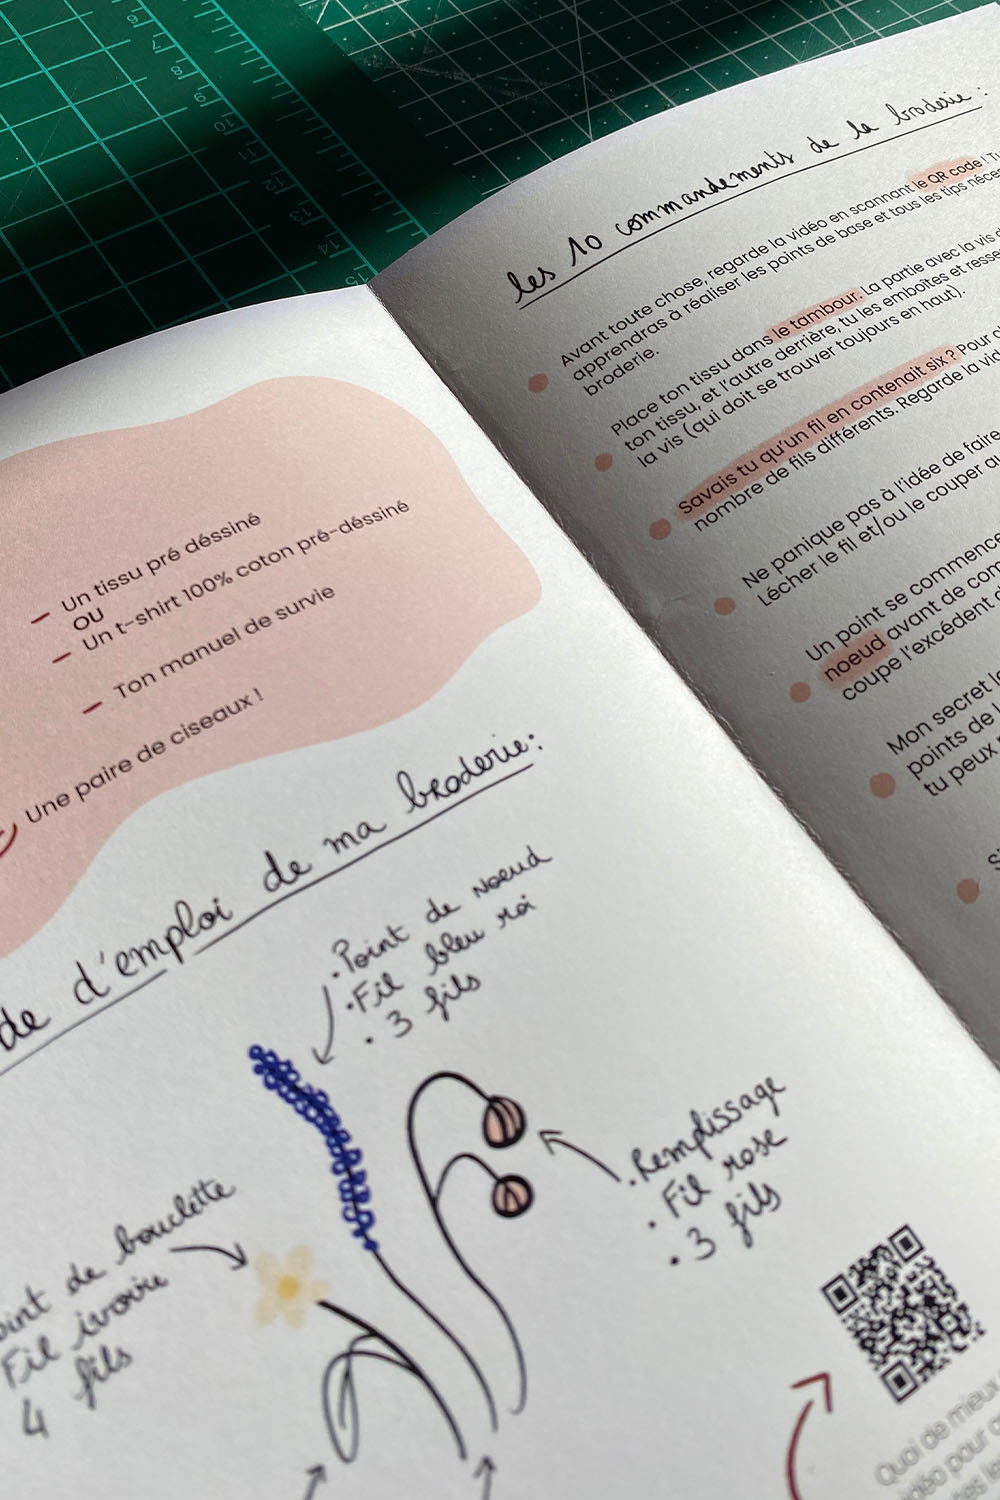 6
7
8
9
10
11
12
13
14
15
Un tissu pré déssiné
OU
Un t-shirt 100% coton pré-déssiné
Ton manuel de survie
Une paire de ciseaux !
d'emploi de ma broderie:
• Point de Noeud
• Fil bleu roi
• 3 fils
• Remplissage
• Fil rose
• 3 fils
de boulette
Fil ivoire
4 fils
Quoi de mieux
pour
les 10 commandements de la broderie :
Avant toute chose, regarde la vidéo en scannant le QR code ! Tu
apprendras à réaliser les points de base et tous les tips
broderie.
Place ton tissu dans le tambour. La partie avec la vis
ton tissu, et l'autre derrière, tu les emboîtes et
la vis (qui doit se trouver toujours en haut).
Savais tu qu'un fil en contenait six ? Pour
nombre de fils différents. Regarde la
Ne panique pas à l'idée de faire
Lécher le fil et/ou le couper
Un point se commence
noeud avant de
coupe l'excédent
Mon secret
points de
tu peux